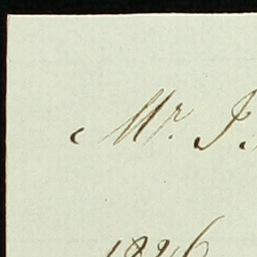 Mr. J.
1826